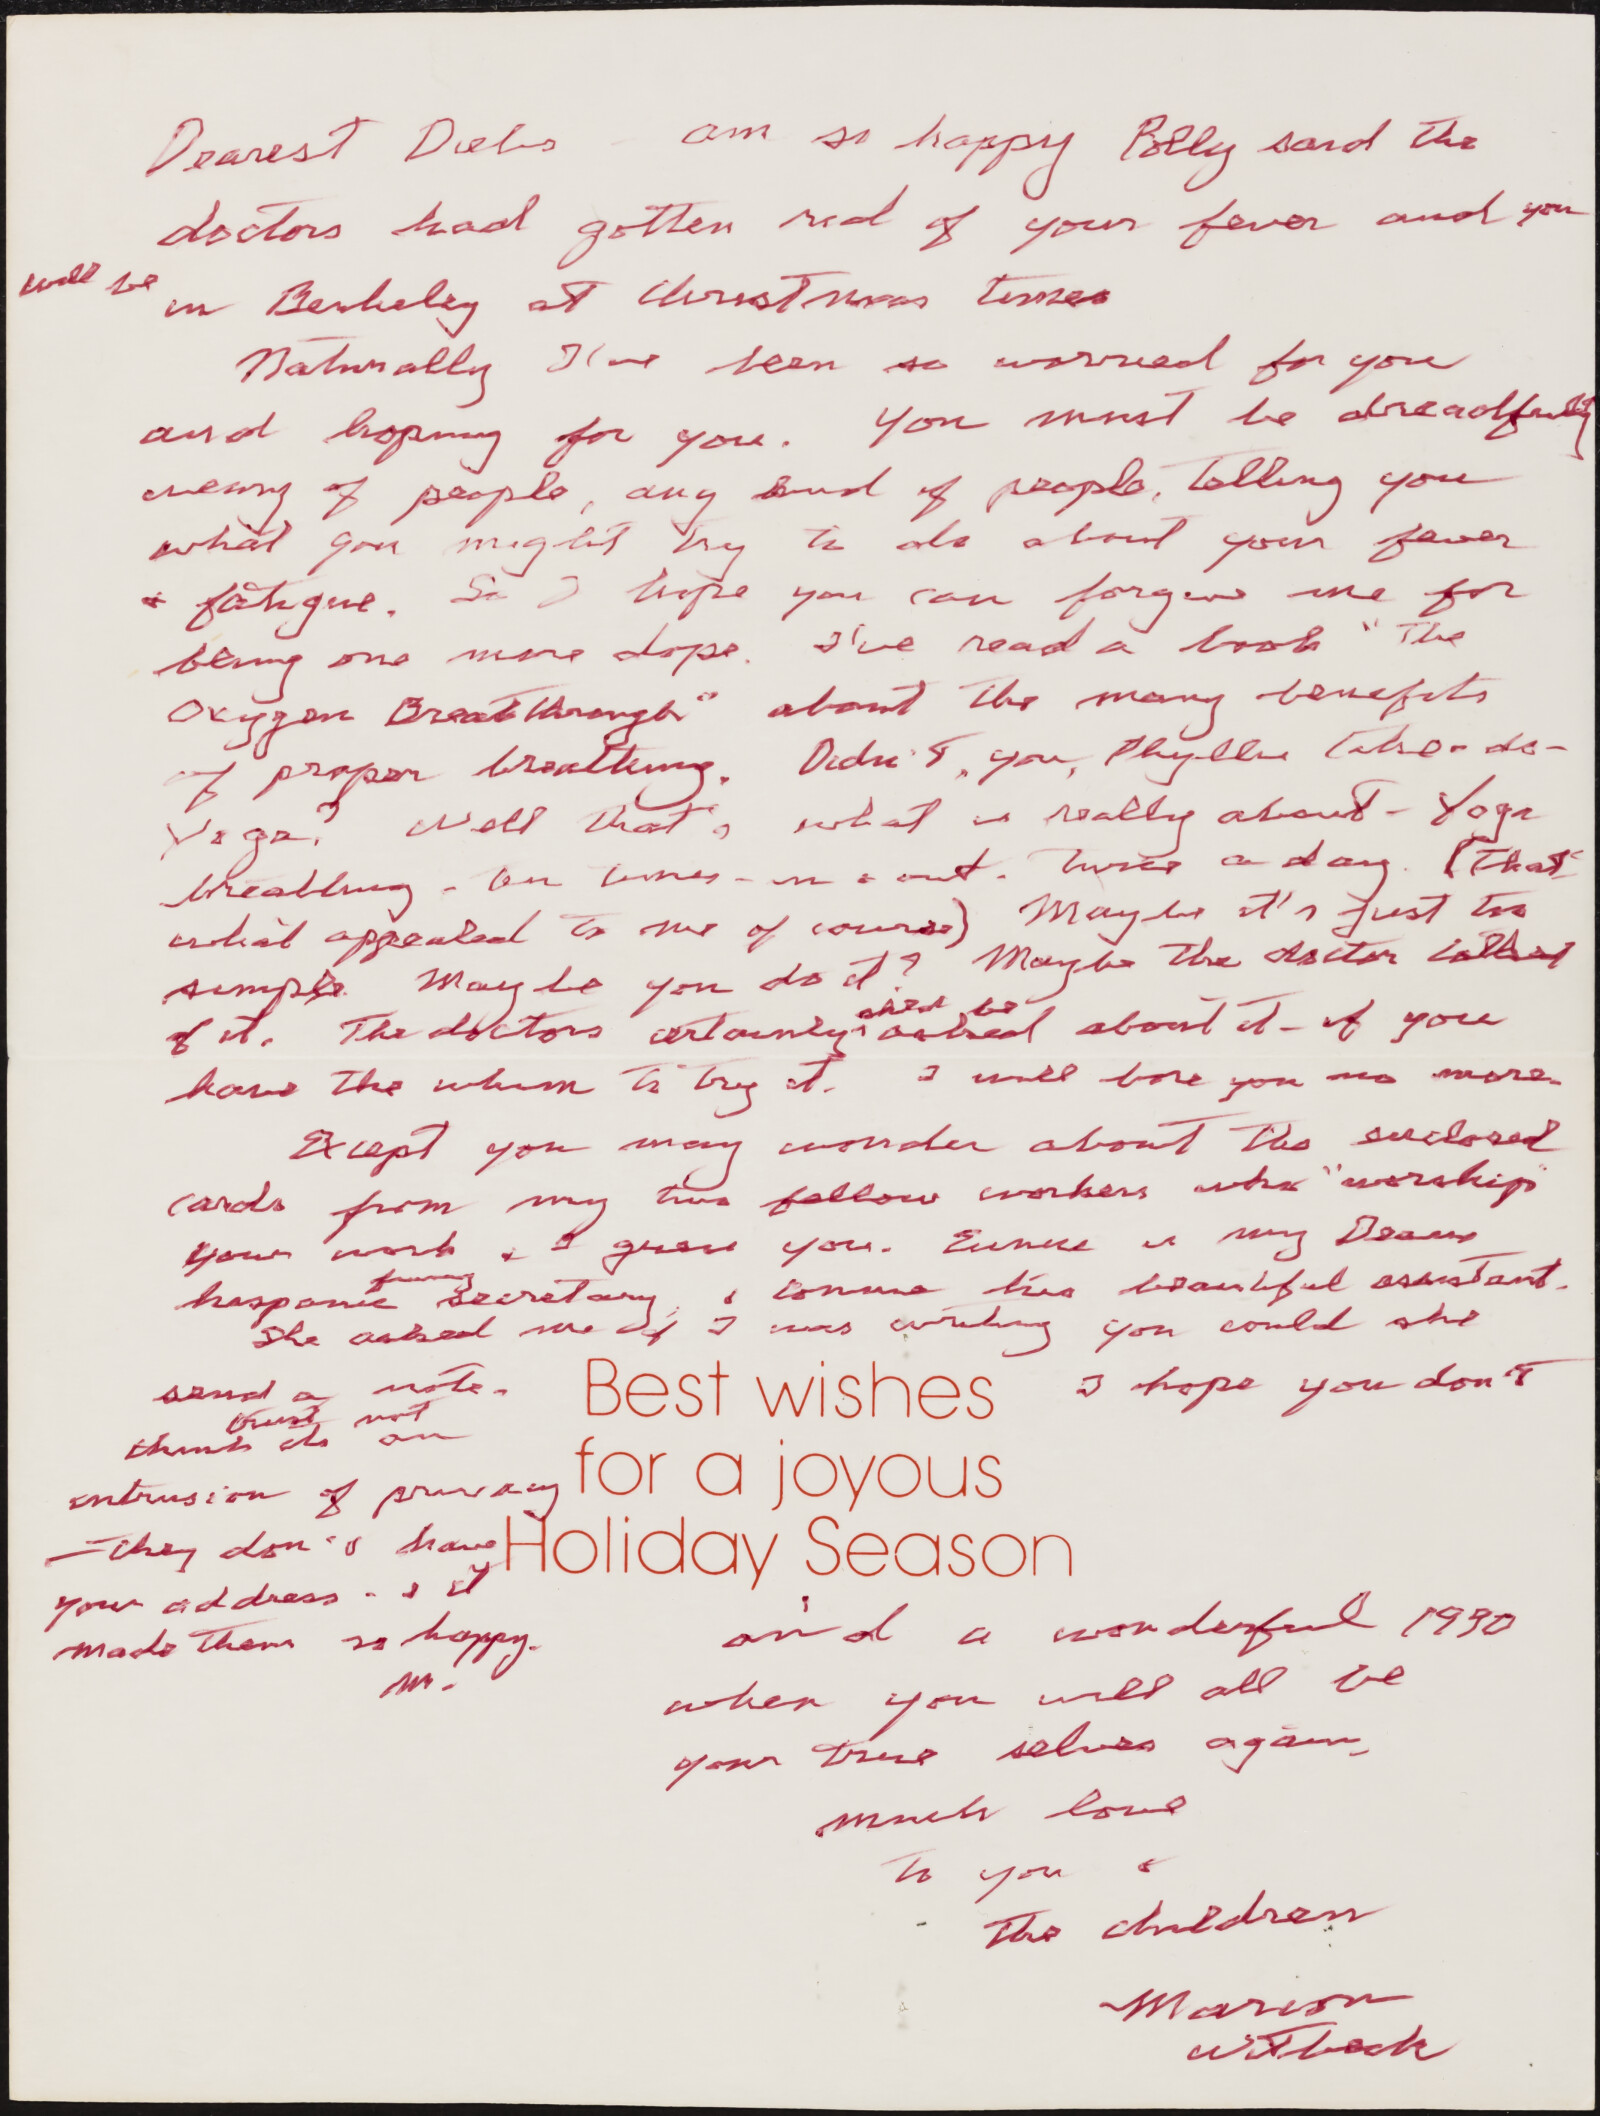 Dearest Diebs - am so happy Polly said the
doctors had gotten rid of your fever and you
will be in Berkeley at Christmas time
Naturally I've been so worried for you
and hoping for you. You must be dreadfully
weary of people, any kind of people, telling you
what you might try to do about your fever
& fatigue. So I hope you can forgive me for
being one more dope. I've read a book "The
Oxygen Breakthrough" about the many benefits
of proper breathing. Didn't, you, Phyllis take - do -
Yoga? Well that's what is really about - Yoga
breathing - ten times - in & out. Twice a day. (That
what appealed to me of course) Maybe it's just too
simple. Maybe you do it? Maybe the doctor talked
of it. The doctors certainly shd be
asked about it - if you
have the whim to try it. I will bore you no more.
Except you may wonder about the enclosed
cards from my two fellow workers who "worship"
your work & I guess you. Eunice is my Deans
hispanic funny secretary, & Connie his beautiful assistant.
She asked me if I was writing you could she
send a note. I hope you don't
trust not
think its an
intrusion of privacy
- they don't have
your address - & it
made them so happy.
M.
Best wishes
for a joyous
Holiday Season
and a wonderful 1990
when you will all be
your true selves again,
much love
to you &
the children
Marion
Witbeck